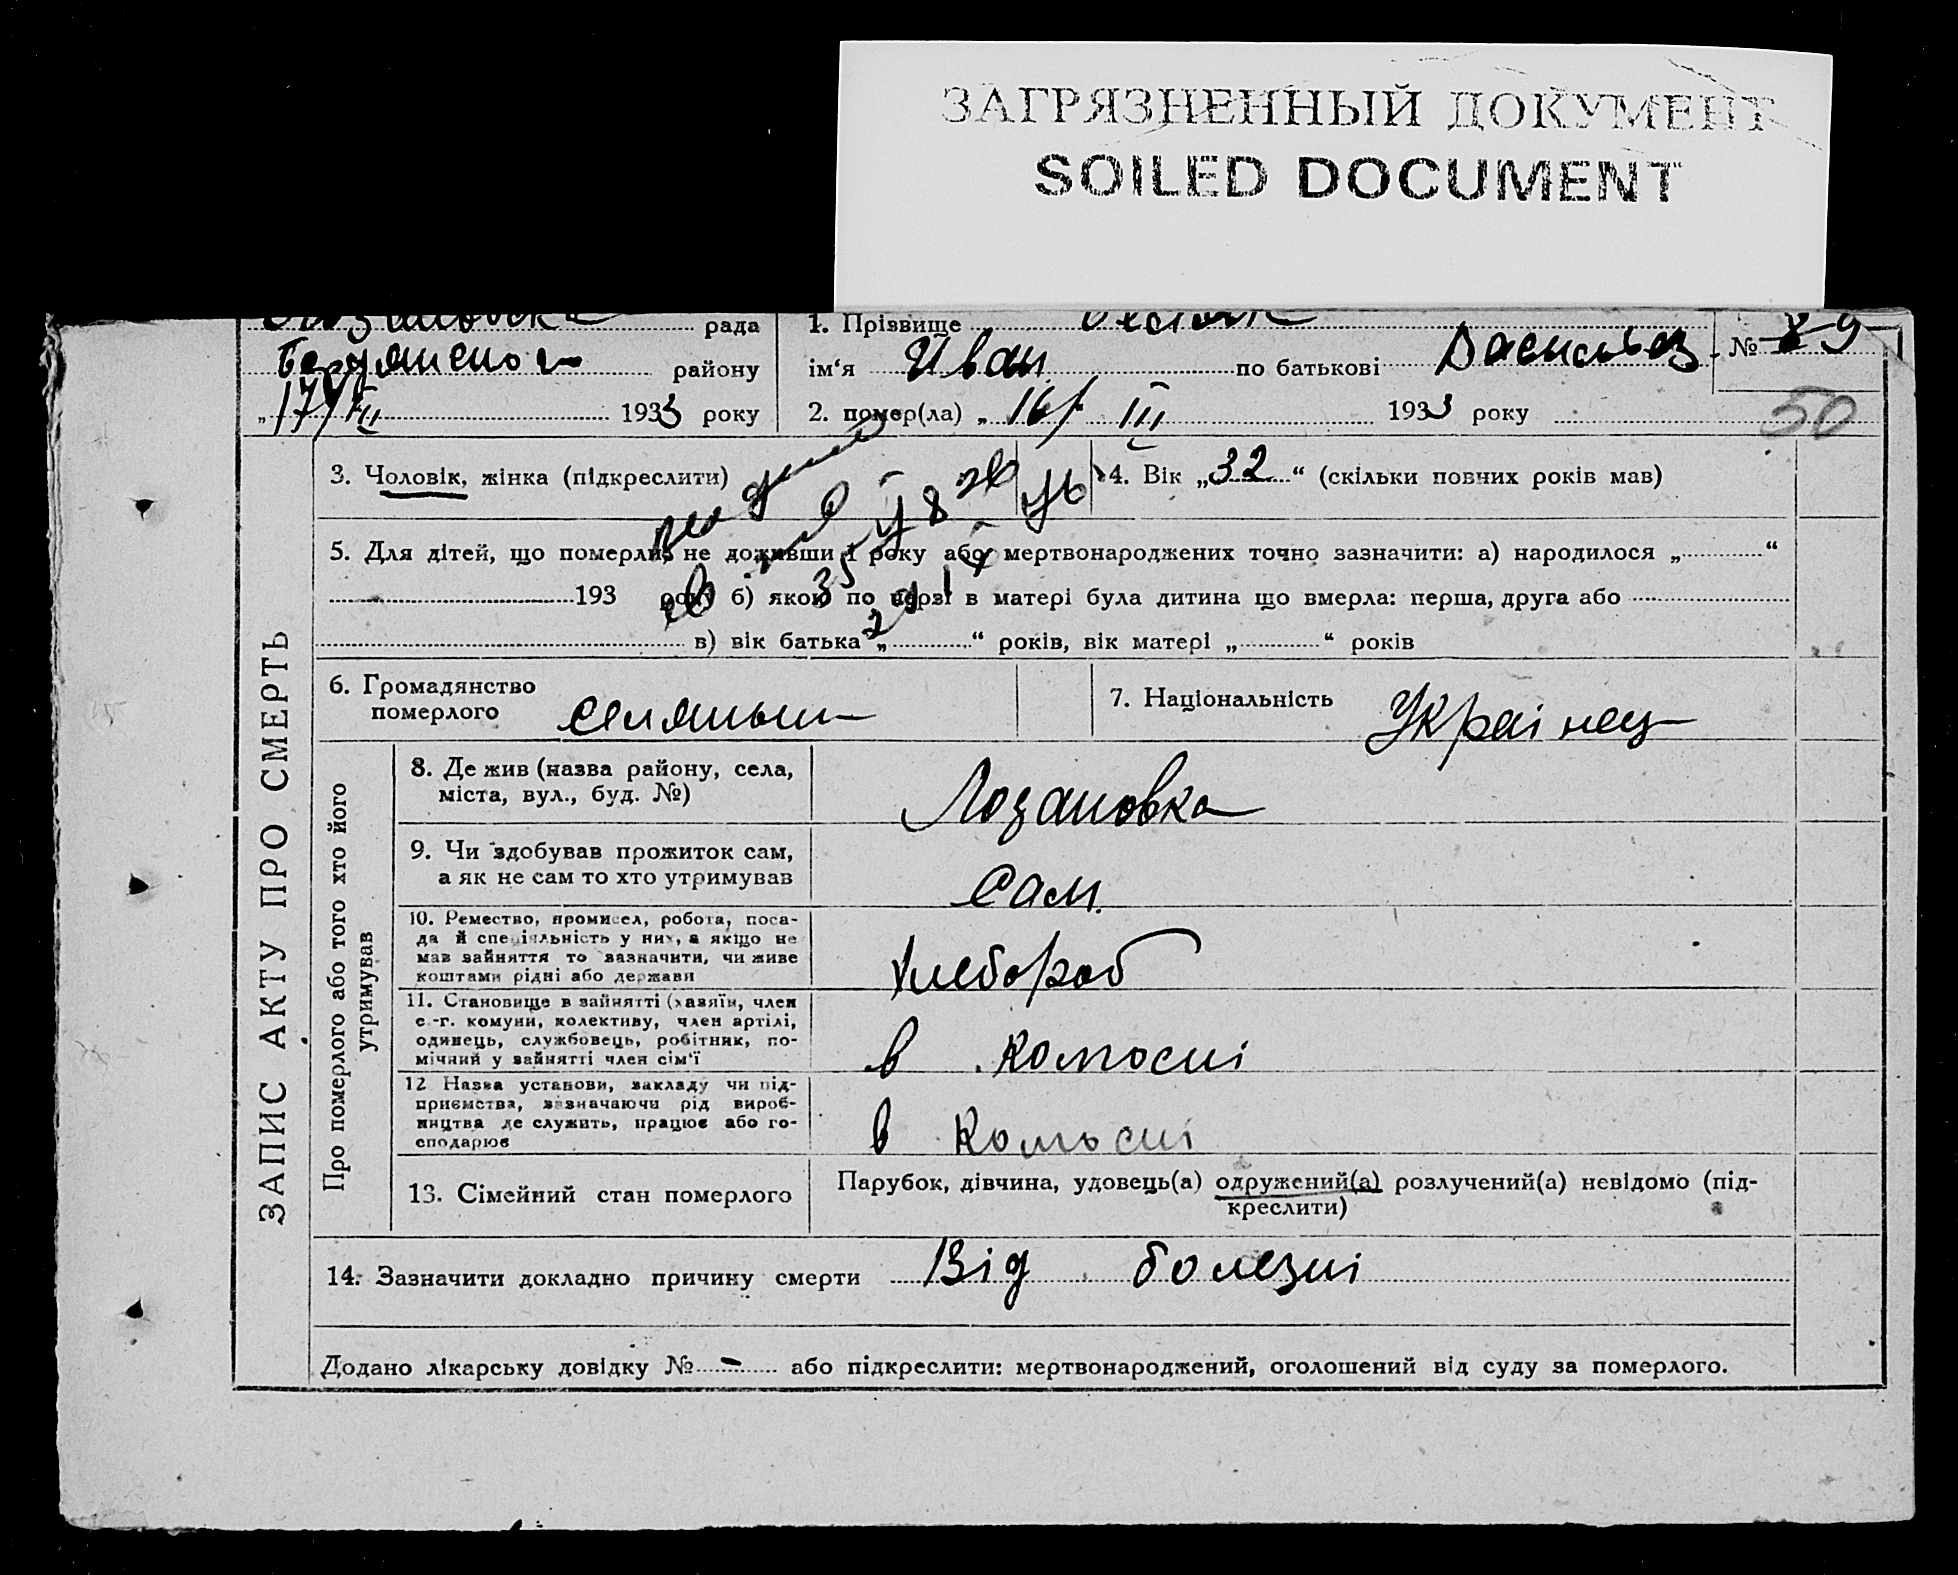 ЗАГРЯЗНЕННЫЙ ДОКУМЕНТ
SOILED DOCUMENT
рада 1. Прізвище
району ім'я Иван по батькові №
„17/III 1933 року 2. помер(ла) „16/ III 1933 року
50
3. Чоловік, жінка (підкреслити) 4. Вік „32“ (скільки повних років мав)
5. Для дітей, що померли, не доживши 1 року або мертвонароджених точно зазначити: а) народилося „ “
193 року б) якою по черзі в матері була дитина що вмерла: перша, друга або
в) вік батька „ “ років, вік матері „ “ років
6. Громадянство
померлого селянын
7. Національність Украінец
ЗАПИС АКТУ ПРО СМЕРТЬ
Про померлого або того хто його
утримував
8. Де жив (назва району, села,
міста, вул., буд. №) Лозановка
9. Чи здобував прожиток сам,
а як не сам то хто утримував Сам.
10. Ремество, промисел, робота, поса-
да й спеціяльність у них, а якщо не
мав зайняття то зазначити, чи живе
коштами рідні або держави
хлебороб
11. Становище в зайнятті (хазяїн, член
с.-г. комуни, колективу, член артілі,
одинець, службовець, робітник, по-
мічний у зайнятті член сім'ї
в
12 Назва установи, закладу чи під-
приємства, зазначаючи рід вироб-
ництва де служить, працює або го-
сподарює
в
13. Сімейний стан померлого Парубок, дівчина, удовець(а) одружений(а) розлучений(а) невідомо (під-
креслити)
14. Зазначити докладно причину смерти Від болезні
Додано лікарську довідку № - або підкреслити: мертвонароджений, оголошений від суду за померлого.